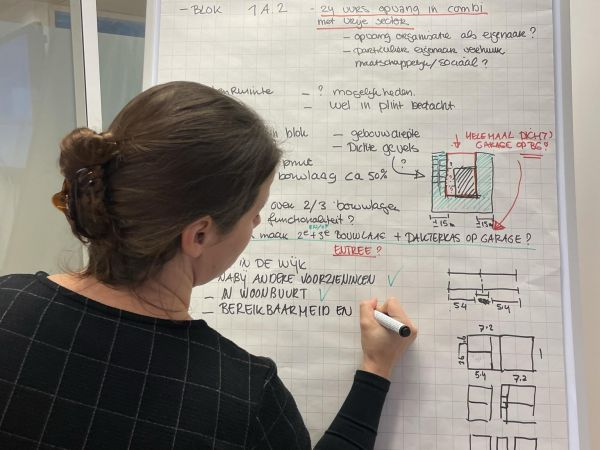 - BLOK 1A.2 - 24 uurs opvang in combi
met vrije sector
- opvang organisatie als eigenaar?
- particuliere eigenaar verhuur
maatschappelijk/sociaal?
- ? mogelijkheden.
- wel in plint bedacht
in blok - gebouwdiepte
- Dichte gevels
?
HELEMAAL DICHT(?)
GARAGE OP BG?
bouwlaag ca 50%
±15m ±15m
over 2/3 bouwlagen
functionaliteit?
maak 2e + 3e BOUWLAAG + DAKTERRAS OP GARAGE?
ENTREE?
IN DE WIJK
NABIJ ANDERE VOORZIENINGEN
- IN WOONBUURT
- BEREIKBAARHEID EN
5.4 5.4
7.2
5.4 7.2